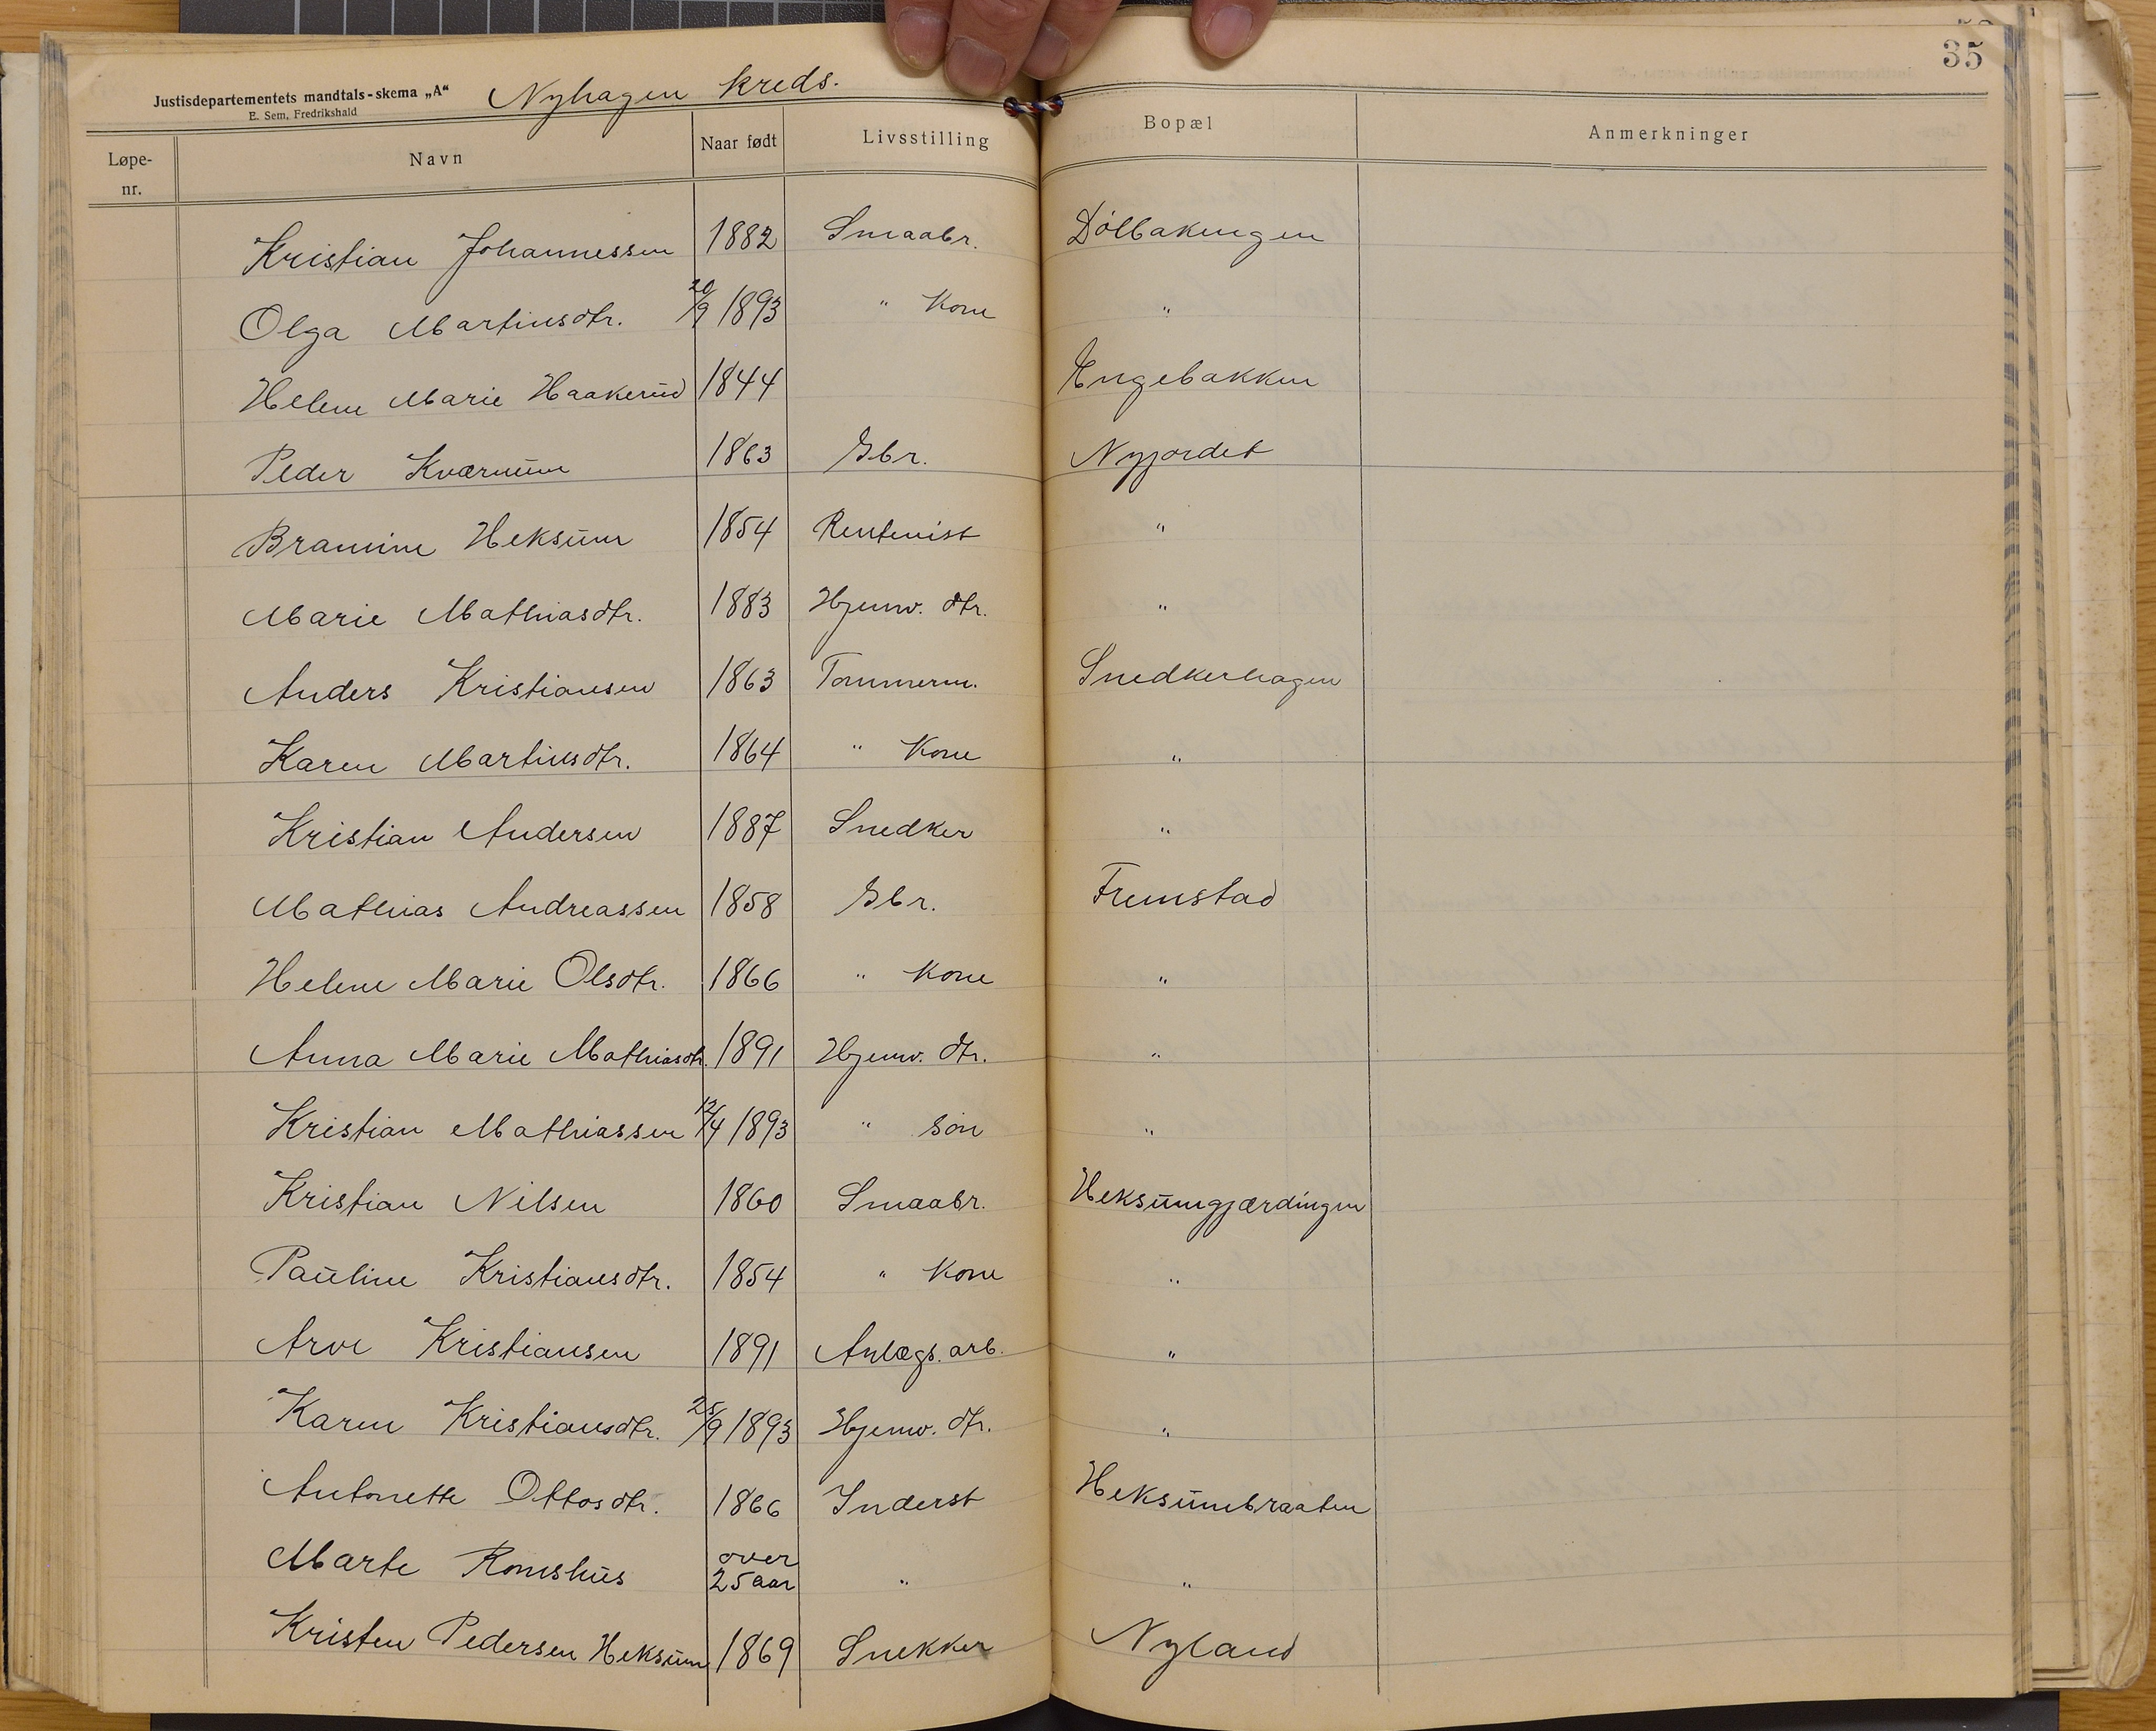 35
Justisdepartementets mandtals-skema „A“ Nyhagen kreds.
E. Sem, Fredrikshald
Løpe-nr. Navn Naar født Livsstilling Bopæl Anmerkninger
Kristian Johannessen 1882 Smaabr. Dölbakengen
Olga Martinsdtr. 20/9 1893 " Kone "
Helene Marie Haakerud 1844 Engebakken
Peder Kværnum 1863 Gbr. Nyjordet
Bramine Heksum 1854 Rentenist "
Marie Mathiasdtr. 1883 Hjemv. dtr. "
Anders Kristiansen 1863 Tømmerm. Snedkerhagen
Karen Martinsdtr. 1864 " Kone "
Kristian Andersen 1887 Snedker "
Mathias Andreassen 1858 Gbr. Fremstad
Helene Marie Olsdtr. 1866 " Kone "
Anna Marie Mathiasdtr. 1891 Hjemv. dtr. "
Kristian Mathiassen 12/4 1893 " sön "
Kristian Nilsen 1860 Smaabr. Heksumgjærdingen
Pauline Kristiansdtr. 1854 " Kone "
Arve Kristiansen 1891 Anlægs. arb. "
Karen Kristiansdtr. 25/9 1893 Hjemv. dtr. "
Antonette Ottosdtr. 1866 Inderst Heksumbraaten
Marte Romshus over 25 aar " "
Kristen Pedersen Heksum 1869 Snekker Nyland